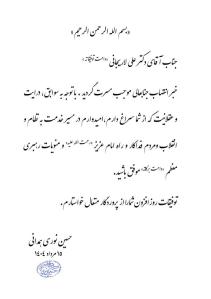 «بسم الله الرحمن الرحیم»
جناب آقای دکتر علی لاریجانی (دامت توفیقاته)
خبر انتصاب جنابعالی موجب مسرت گردید. باتوجه به سوابق، درایت
و عقلانیت که از شما سراغ دارم، امیدوارم در مسیر خدمت به نظام و
انقلاب و مردم فداکار و راه امام عزیز و منویات رهبری
معظم موفق باشید.
توفیقات روز افزون شما را از پروردگار متعال خواستارم.
حسین نوری همدانی
۱۵ مرداد ۱۴۰۴